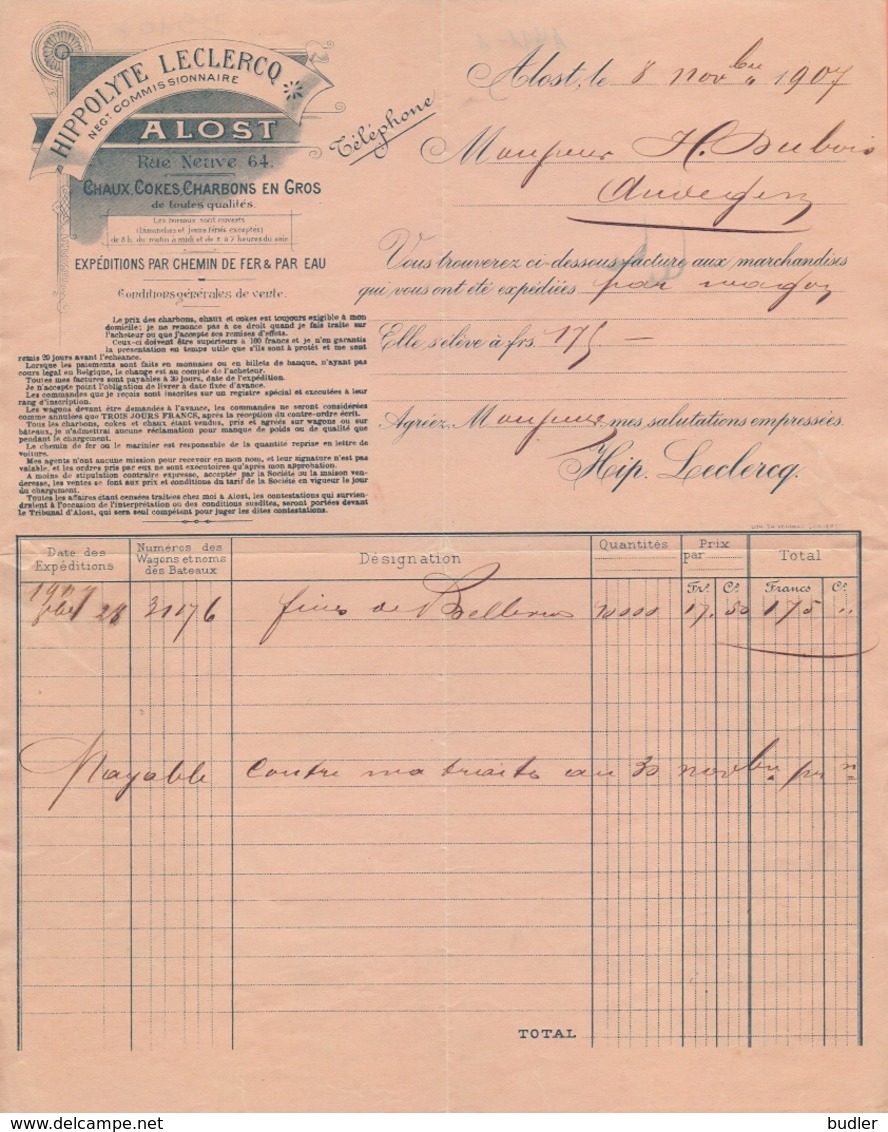 HIPPOLYTE LECLERCQ
NEGT COMMISSIONNAIRE
ALOST
Rue Neuve 64.
Téléphone
CHAUX, COKES, CHARBONS EN GROS
de toutes qualités.
Les bureaux sont ouverts
(Dimanches et jours fériés exceptés)
de 8 h. du matin à midi et de 2 à 7 heures du soir
EXPÉDITIONS PAR CHEMIN DE FER & PAR EAU
Conditions générales de vente.
Le prix des charbons, chaux et cokes est toujours exigible à mon
domicile; je ne renonce pas à ce droit quand je fais traite sur
l'acheteur ou que j'accepte ses remises d'effets.
Ceux-ci doivent être supérieurs à 100 francs et je n'en garantis
la présentation en temps utile que s'ils sont à protêt et me sont
remis 20 jours avant l'échéance.
Lorsque les paiements sont faits en monnaies ou en billets de banque, n'ayant pas
cours légal en Belgique, le change est au compte de l'acheteur.
Toutes mes factures sont payables à 30 jours, date de l'expédition.
Je n'accepte point l'obligation de livrer à date fixe d'avance.
Les commandes que je reçois sont inscrites sur un registre spécial et exécutées à leur
rang d'inscription.
Les wagons devant être demandés à l'avance, les commandes ne seront considérées
comme annulées que TROIS JOURS FRANCS, après la réception du contre-ordre écrit.
Tous les charbons, cokes et chaux étant vendus, pris et agréés sur wagons ou sur
bateaux, je n'admettrai aucune réclamation pour manque de poids ou de qualité que
pendant le chargement.
Le chemin de fer ou le marinier est responsable de la quantité reprise en lettre de
voiture.
Mes agents n'ont aucune mission pour recevoir en mon nom, et leur signature n'est pas
valable, et les ordres pris par eux ne sont exécutoires qu'après mon approbation.
A moins de stipulation contraire expresse, acceptée par la Société ou la maison ven-
deresse, les ventes se font aux prix et conditions du tarif de la Société en vigueur le jour
du chargement.
Toutes les affaires étant censées traitées chez moi à Alost, les contestations qui survien-
draient à l'occasion de l'interprétation ou des conditions susdites, seront portées devant
le Tribunal d'Alost, qui sera seul compétent pour juger les dites contestations.
Alost, le 8 novbre 1907
Monsieur H. Dubois
Audegem
Vous trouverez ci-dessous facture aux marchandises
qui vous ont été expédiées par wagon
Elle s'élève à frs. 175 —
Agréez, Monsieur, mes salutations empressées.
Hip. Leclercq.
Date des Expéditions
Numéros des Wagons et noms des Bateaux
Désignation
Quantités
Prix par
Total
Frs. Cs. Francs Cs.
1907
28 31076 fines de 10000 17.50 175 ..
Payable contre ma traite au 30 novbre
TOTAL
budler